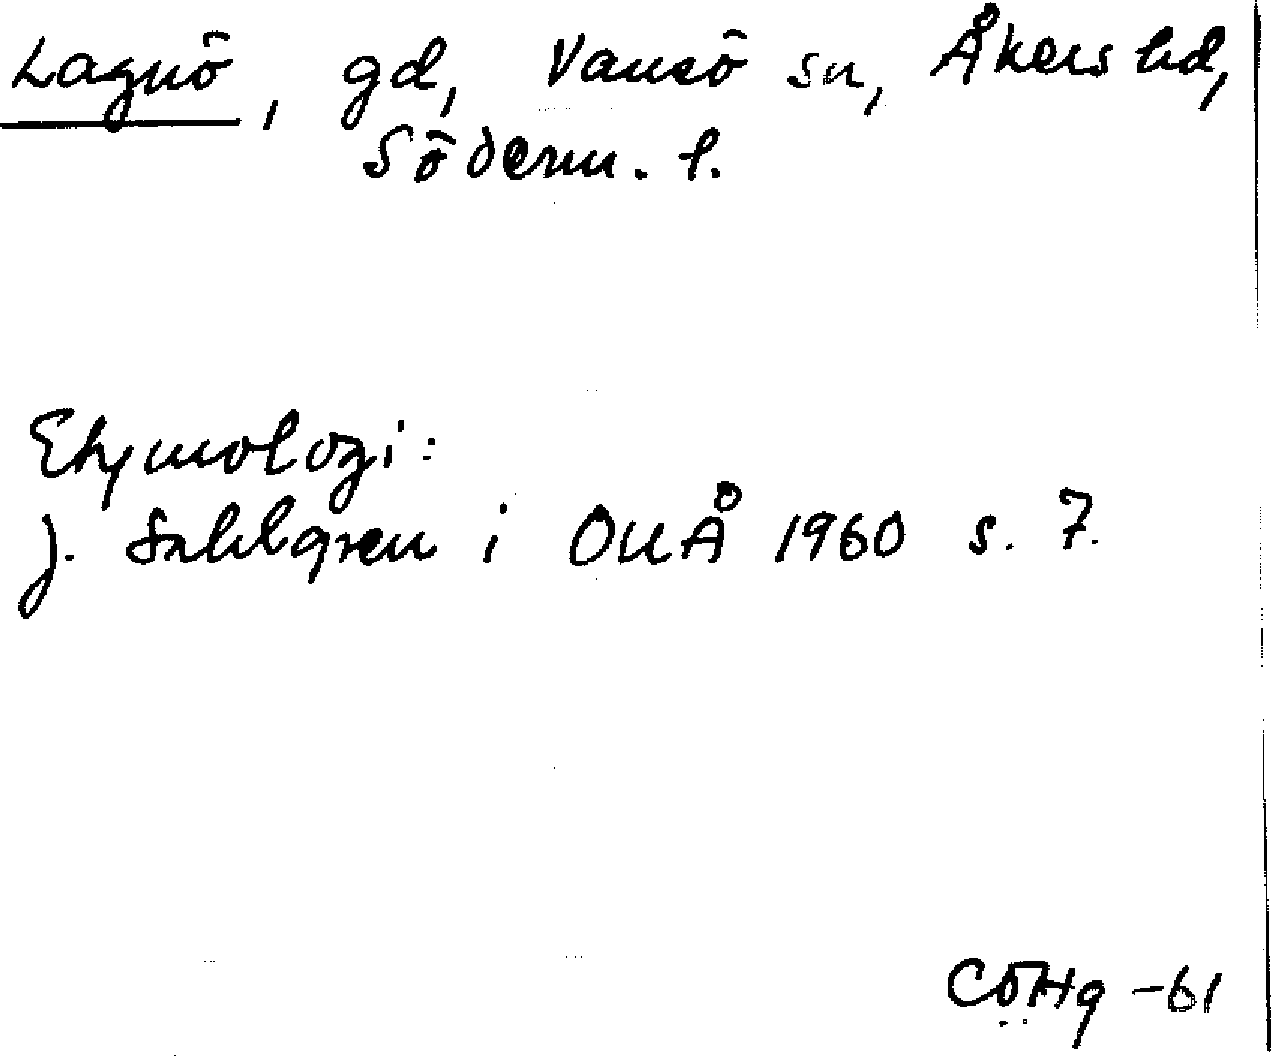 Lagnö, gd, Vansö sn, Åkers hd,
Söderm. l.
Etymologi:
J. Sahlgren i OUÅ 1960 s. 7.
CÖHg -61